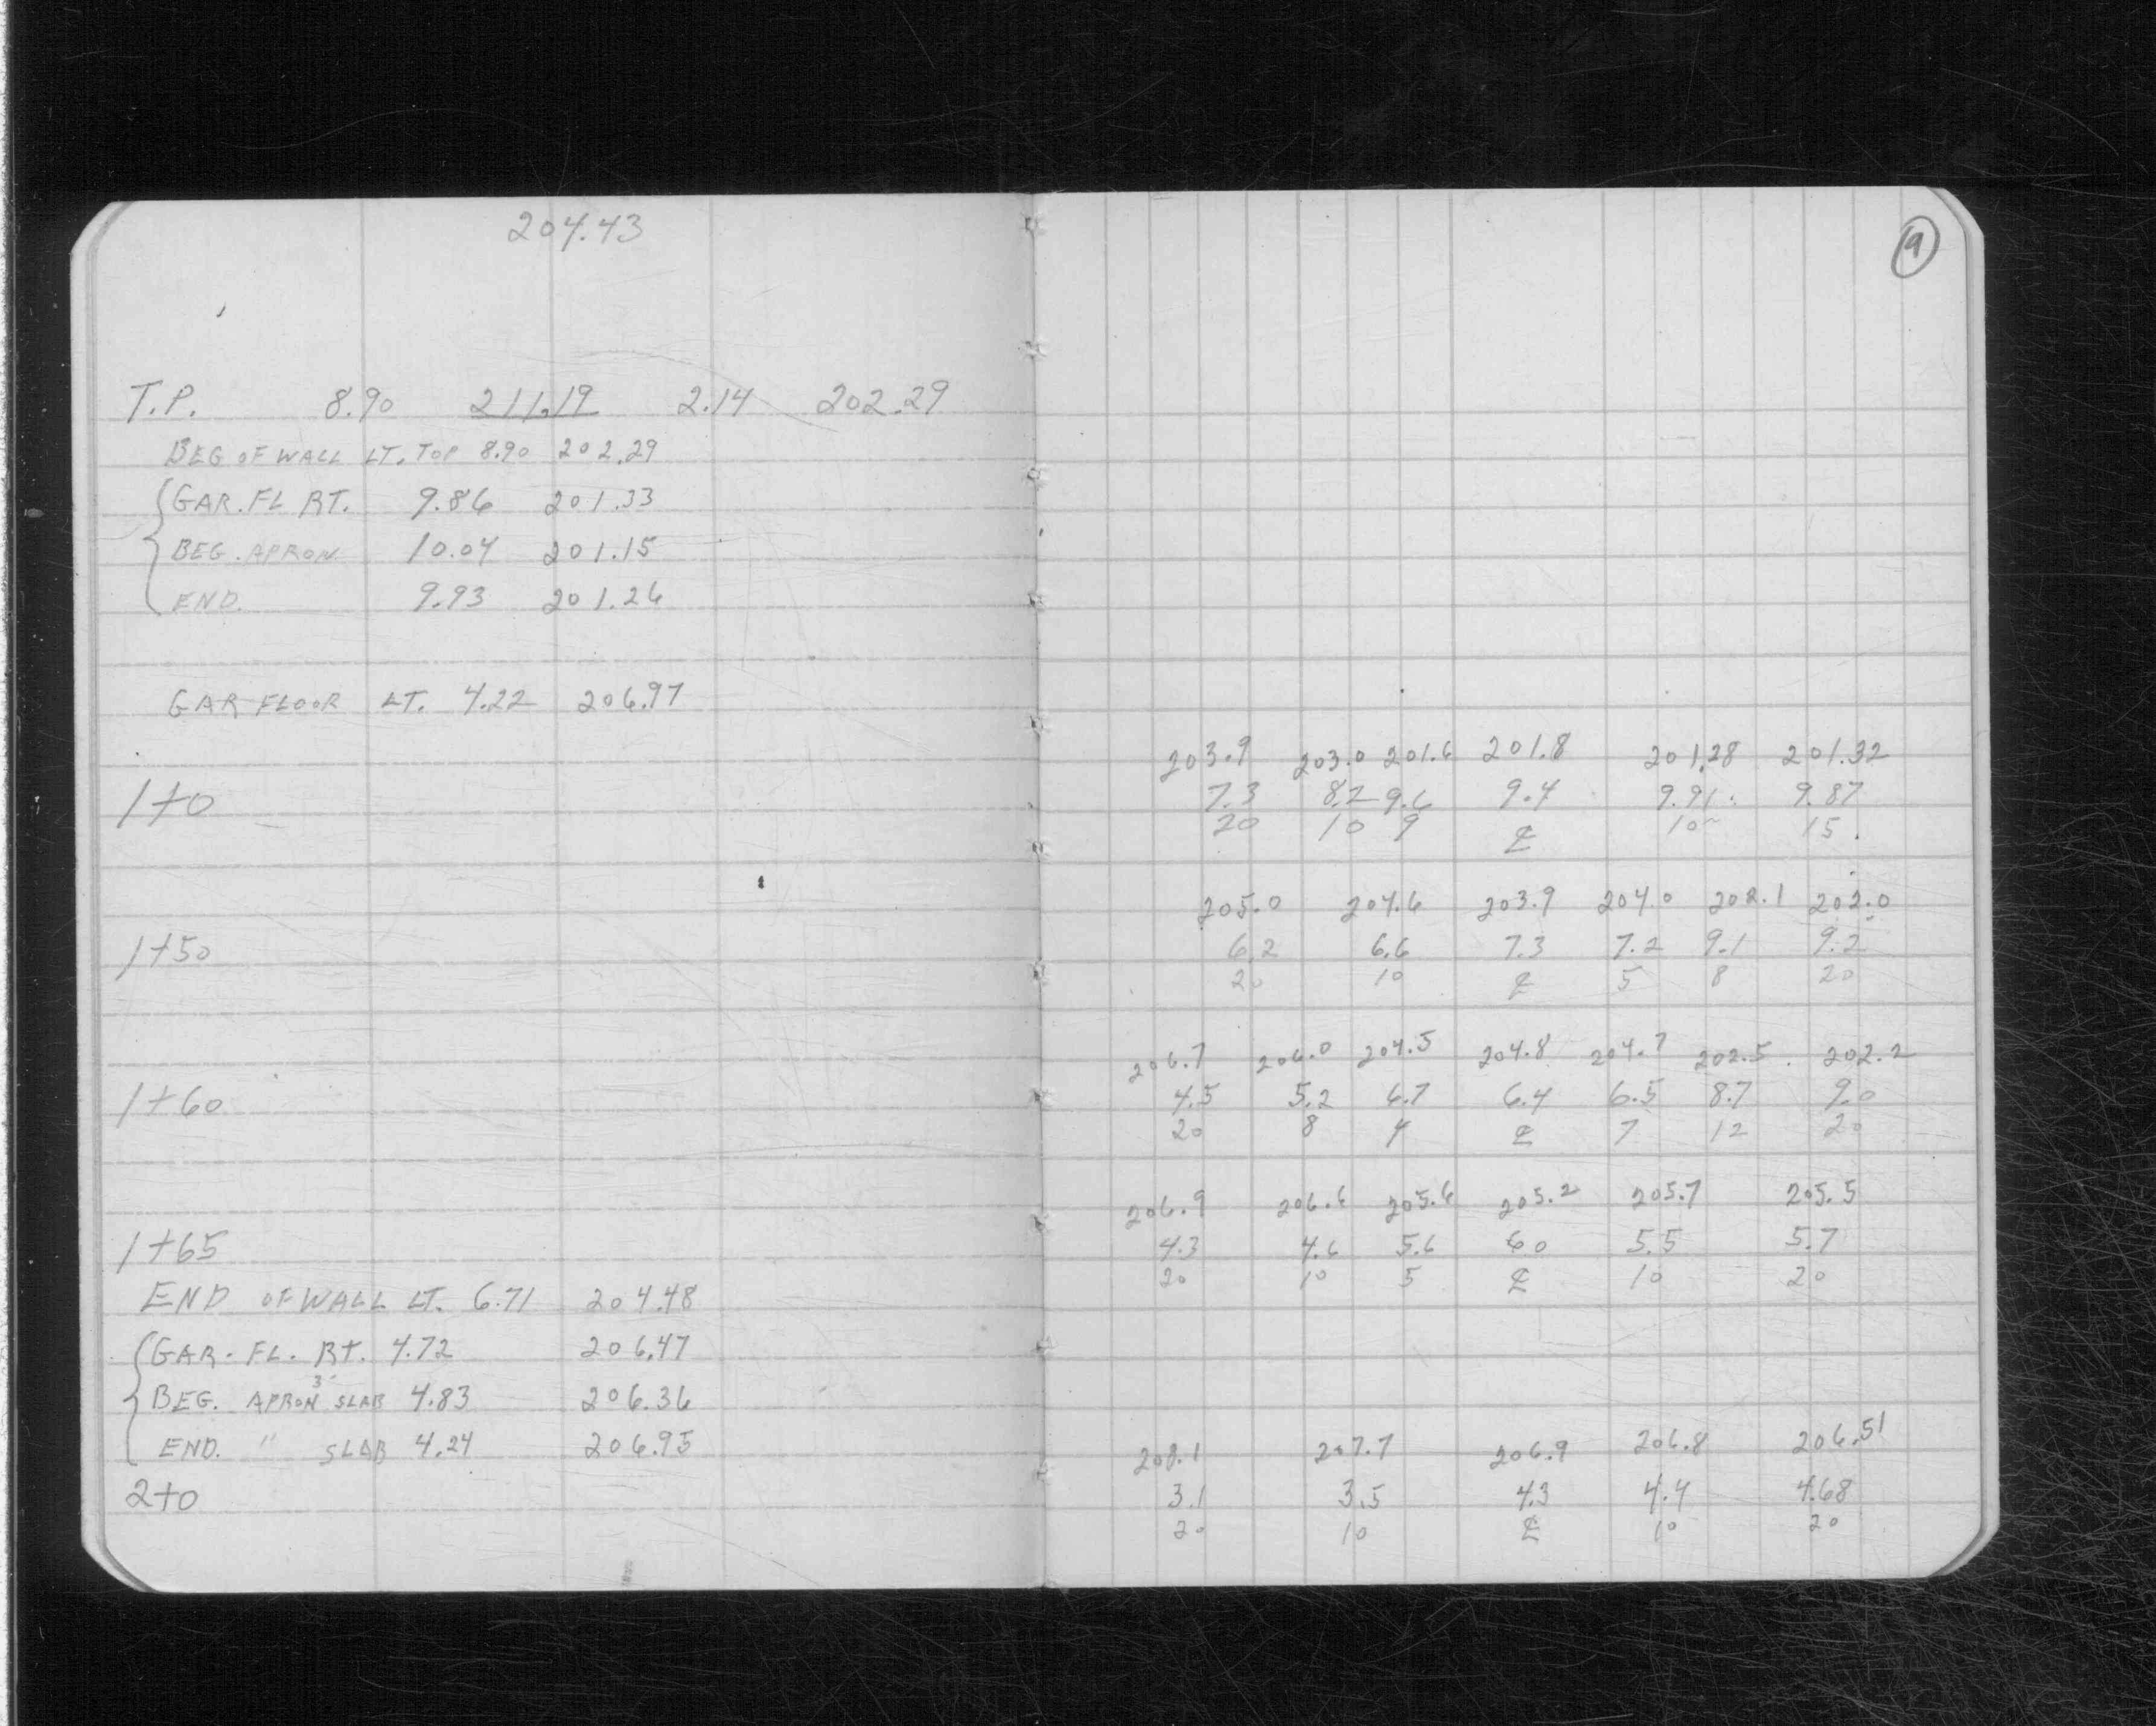 204.43
T.P. 8.90 211.19 2.14 202.29
BEG OF WALL LT. TOP 8.90 202.29
GAR. FL RT. 9.86 201.33
BEG. APRON 10.04 201.15
END. 9.93 201.26
GAR FLOOR LT. 4.22 206.97
1+0
1+50
1+60
1+65
END OF WALL LT. 6.71 204.48
GAR. FL. RT. 4.72 206.47
3'
BEG. APRON SLAB 4.83 206.36
END. " SLAB 4.24 206.95
2+0
9
203.9 203.0 201.6 201.8 201.28 201.32
7.3 8.2 9.6 9.4 9.91 9.87
20 10 9 ℄ 10 15
205.0 204.6 203.9 204.0 202.1 202.0
6.2 6.6 7.3 7.2 9.1 9.2
20 10 ℄ 5 8 20
206.7 206.0 204.5 204.8 204.7 202.5 202.2
4.5 5.2 6.7 6.4 6.5 8.7 9.0
20 8 4 ℄ 7 12 20
206.9 206.6 205.6 205.2 205.7 205.5
4.3 4.6 5.6 60 5.5 5.7
20 10 5 ℄ 10 20
208.1 207.7 206.9 206.8 206.51
3.1 3.5 4.3 4.4 4.68
20 10 ℄ 10 20